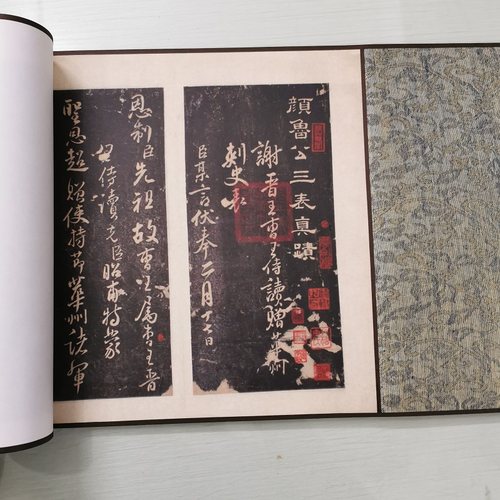 顏魯公三表真蹟
謝晋王曹王侍讀贈華州
刺史表
臣某言伏奉二月十七日
恩制臣先祖故曹王属曹王晋
王侍讀先臣昭甫特蒙
聖恩超贈使持節華州諸軍